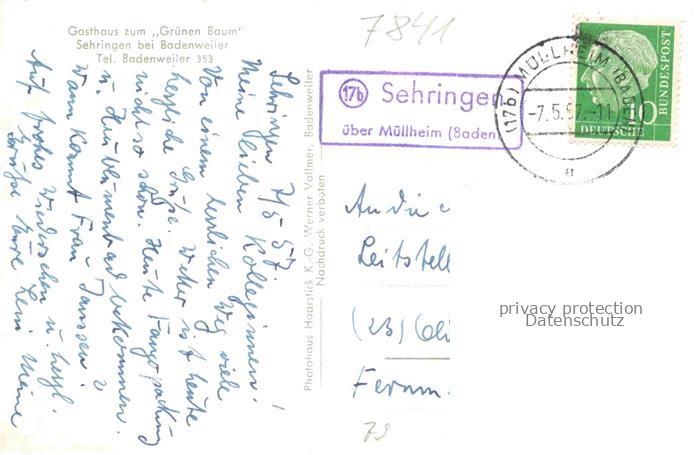 Gasthaus zum „Grünen Baum"
Sehringen bei Badenweiler
Tel. Badenweiler 353
Sehringen 7/5 57.
Meine lieben Kolleginnen!
Von einem herrlichen Weg viele
herzliche Grüße. Wetter ist heute
nicht so schön. Heute Fangopackung
u. Heublumenbad bekommen.
Wann kommt Frau Janssen?
Auf frohes Wiedersehen u. herzl.
Grüße Eure Leni Meine
Photohaus Haarstick K.-G. Werner Vollmer, Badenweiler
Nachdruck verboten
7841
17b Sehringen
über Müllheim (Baden
(17b) MÜLLHEIM (BADEN)
-7.5.57.-11
a
10
DEUTSCHE
BUNDESPOST
An die
Leitstell
(23)
Fernm
privacy protection
Datenschutz